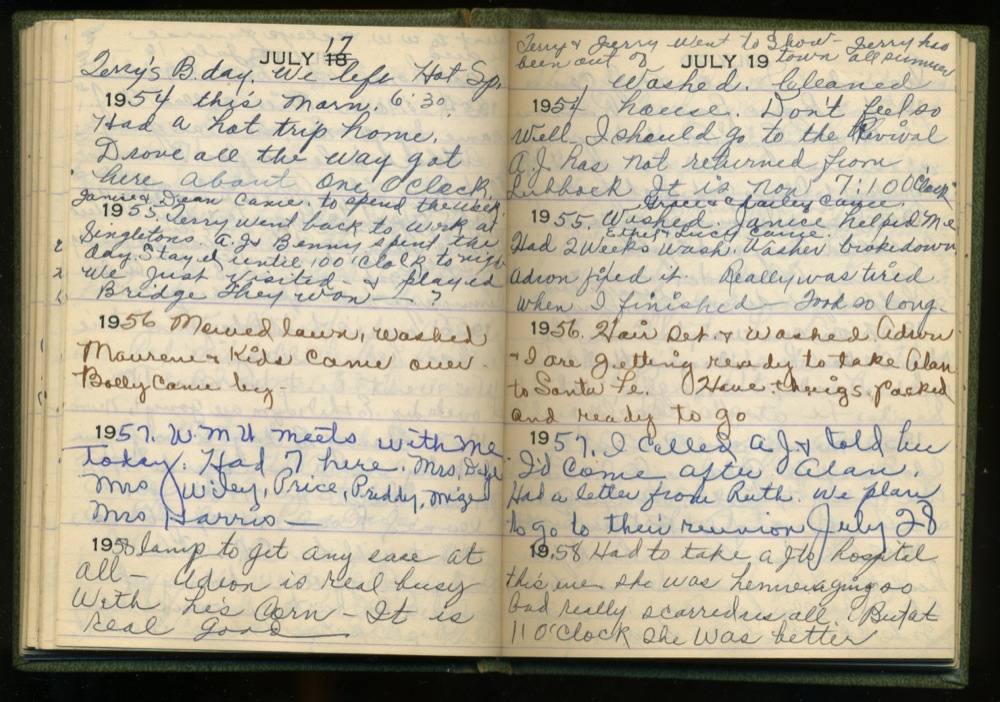 17
JULY 18
Terry's B.day. We left Hot Sp.
1954 this morn. 6:30
Had a hot trip home.
Drove all the way got
here about One O'Clock
Janice & Dean came to spend the week
1955. Terry went back to work at
Singletons. A.J. & Benny spent the
day. Stayed until 100'Clock tonight
We just visited - & played
Bridge They won — ?
1956 Mowed lawn, washed
Maurene & Kids came over.
Bolly came by.
1957. W.M.U meets with me
today. Had 7 here. Mrs.
Mrs Wiley, Price, Priddy, Mize
Mrs Harris —
1958 to get any ease at
all — Adron is real busy
With his Corn - It is
real good
Terry & Jerry went to Show - Jerry has
been out of town all summer
JULY 19
Washed. Cleaned
1954 house. Don't feel so
well - I should go to the Revival
A.J. has not returned from
Lubbock It is now 7:10 O'Clock
Grace & came
1955. Washed Janice helped me
came.
Had 2 weeks wash. Washer broke down
Adron fixed it. Really was tired
when I finished - Took so long.
1956. Hair Set. & washed. Adron
& I are getting ready to take Alan
to Santa Fe. Have things packed
and ready to go
1957. I called A.J. & told her
I'd come after Alan.
Had a letter from Ruth. We plan
to go to their reunion July 28
1958 Had to take A.J. to hospital
this eve. she was hemmeraging so
bad really scarred us all. But at
11 O'Clock she was better